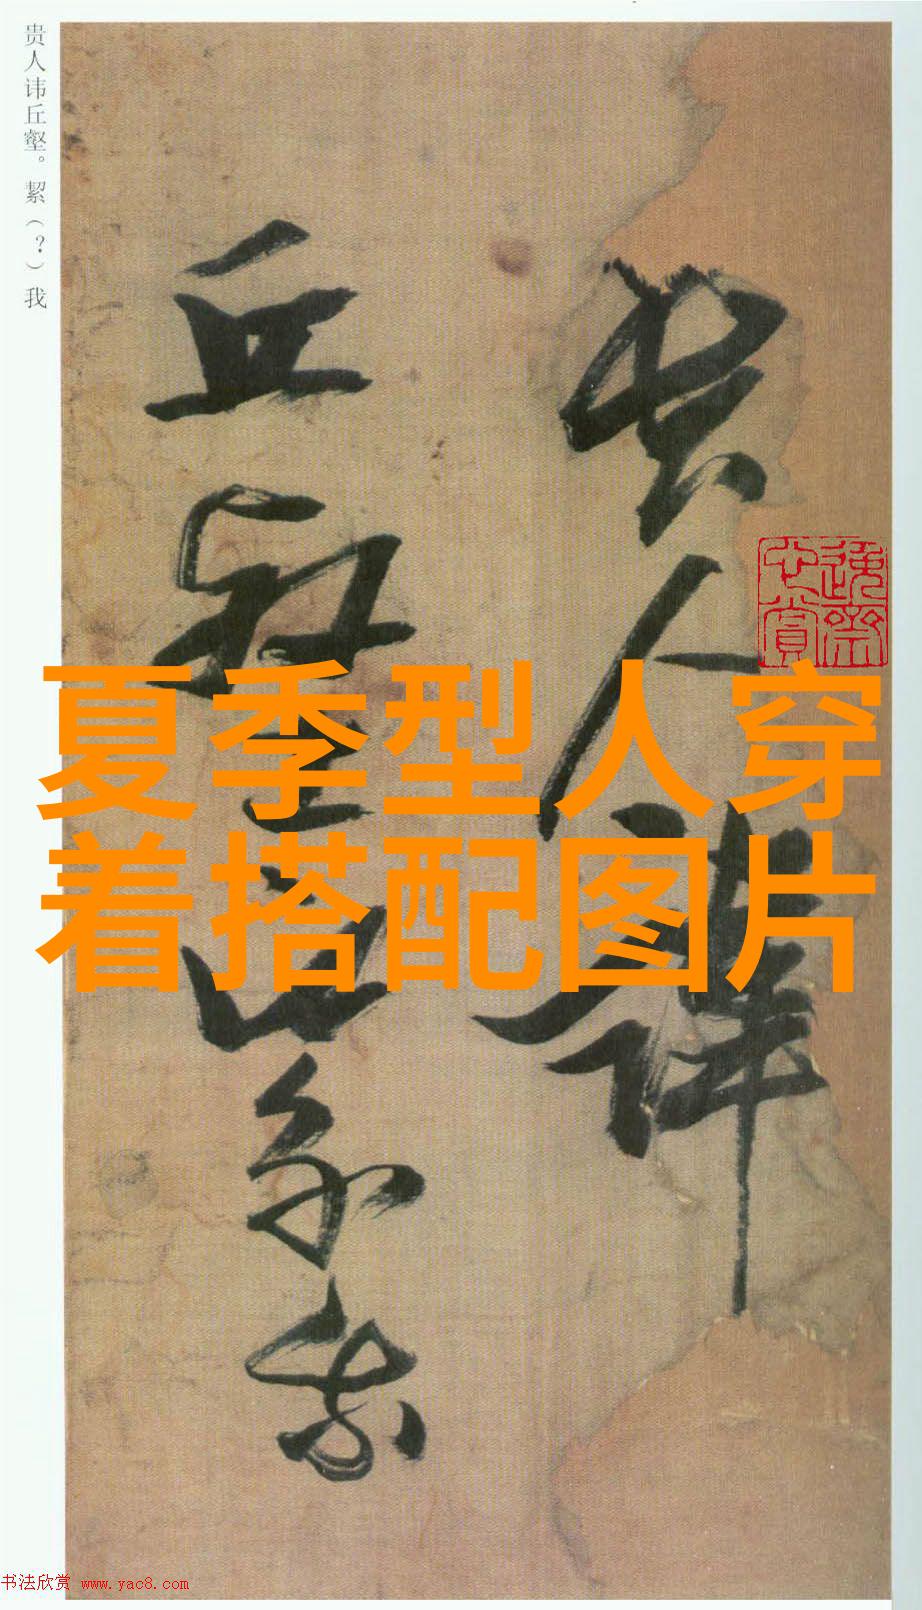 贵人讳丘壑。絜（？）我
贵人讳
丘壑
絜我
夏季型人穿
着搭配图片
书法欣赏 www.yac8.com